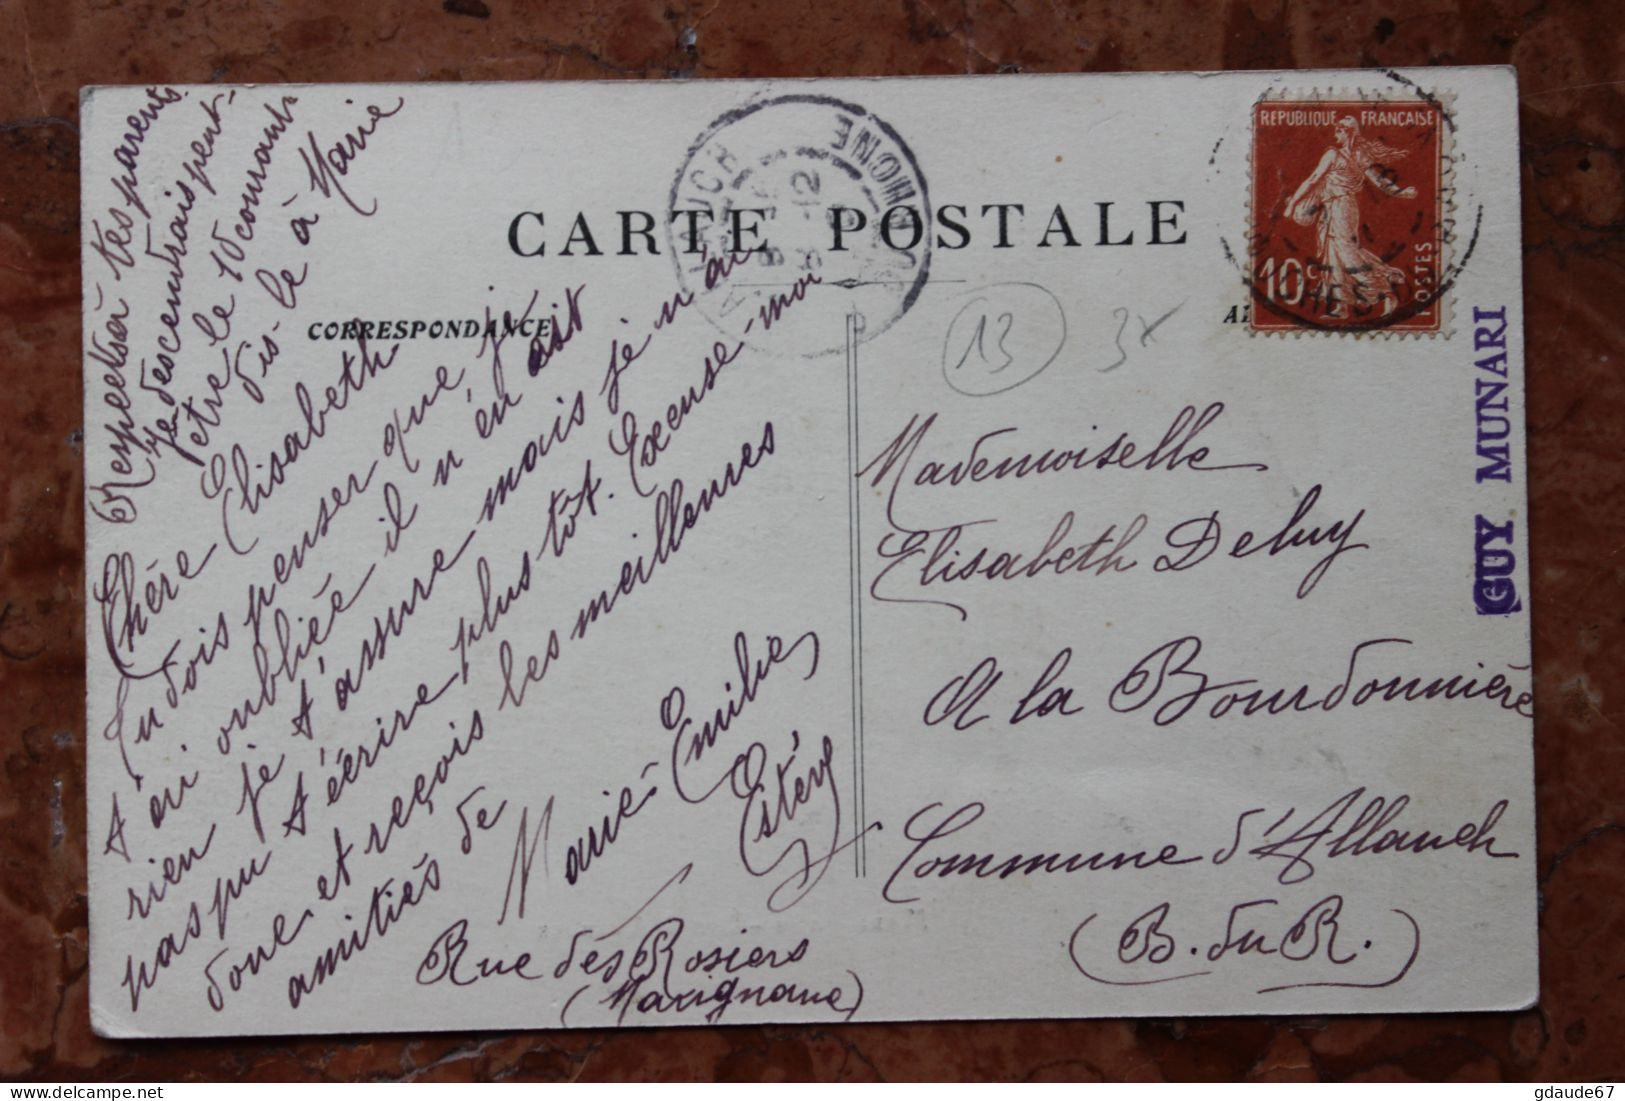 CARTE POSTALE
CORRESPONDANCE
REPUBLIQUE FRANÇAISE
10c
POSTES
GUY MUNARI
13
3x
Respects à tes parents
je descendrais peut-
être le 10 courant
dis-le à Marie
Chère Elisabeth
Tu dois penser que je
t'ai oubliée il n'en est
rien je t'assure mais je n'ai
pas pu t'écrire plus tôt. Excuse-moi
donc et reçois les meilleures
amitiés de
Marie-Emilie
Estève
Rue des Rosiers
(Marignane)
Mademoiselle
Elisabeth Deluy
A la Bourdonnière
Commune d'Allauch
(B. du R.)
gdaude67